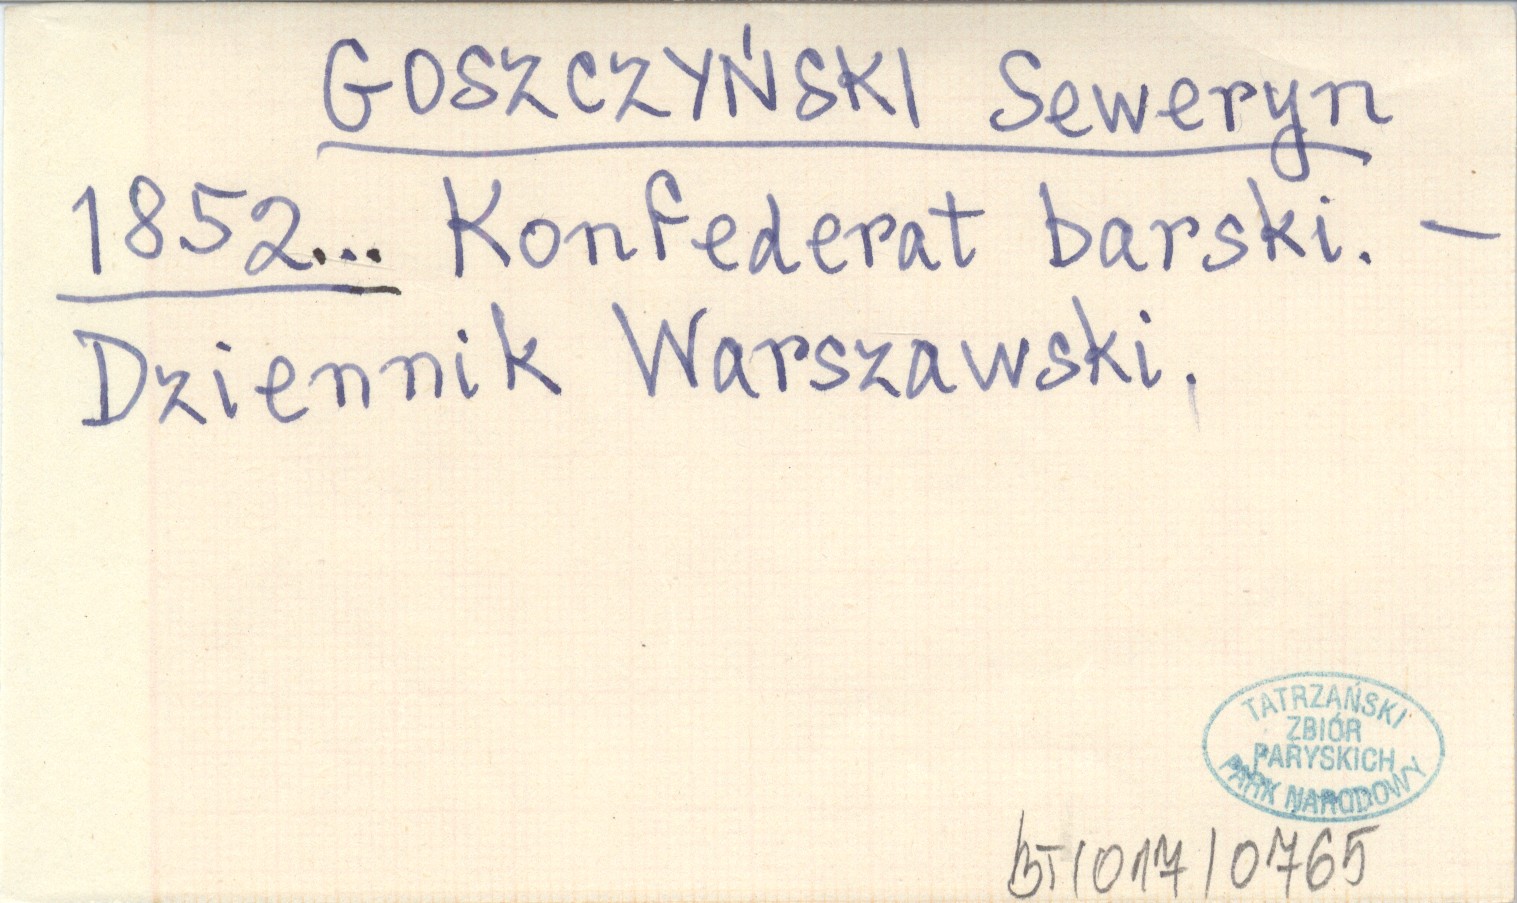 GOSZCZYŃSKI Seweryn
1852... Konfederat barski. –
Dziennik Warszawski.
TATRZAŃSKI
ZBIÓR
PARYSKICH
PARK NARODOWY
BT/017/0765